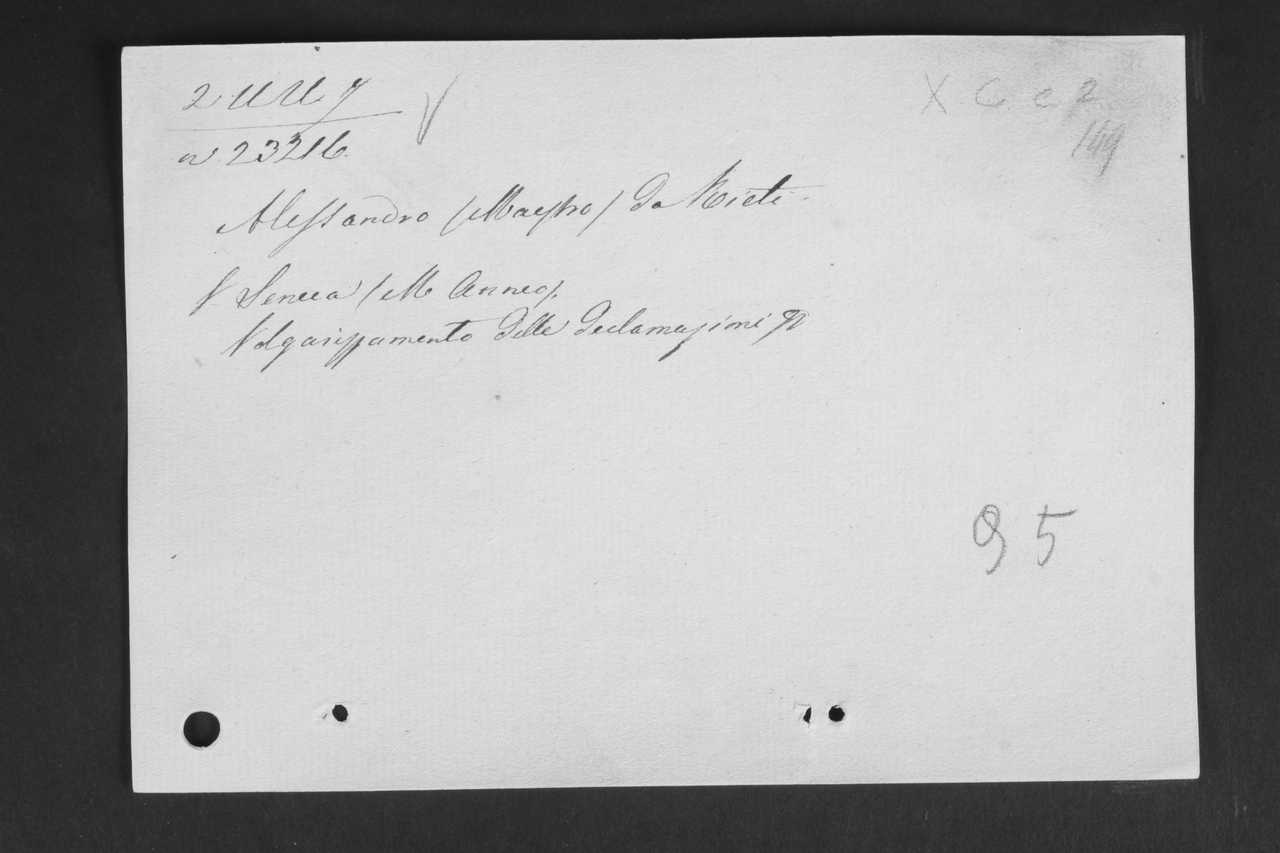 2 UU 7
X C e 2
n 23216.
149
Alessandro (Maestro) da Rieti.
V. Seneca (M. Anneo).
Volgarizzamento delle declamazioni
95